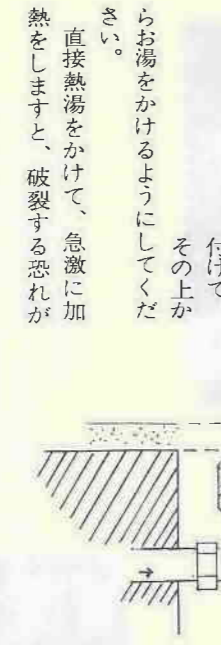 付けて
その上か
らお湯をかけるようにしてくだ
さい。
直接熱湯をかけて、急激に加
熱をしますと、破裂する恐れが